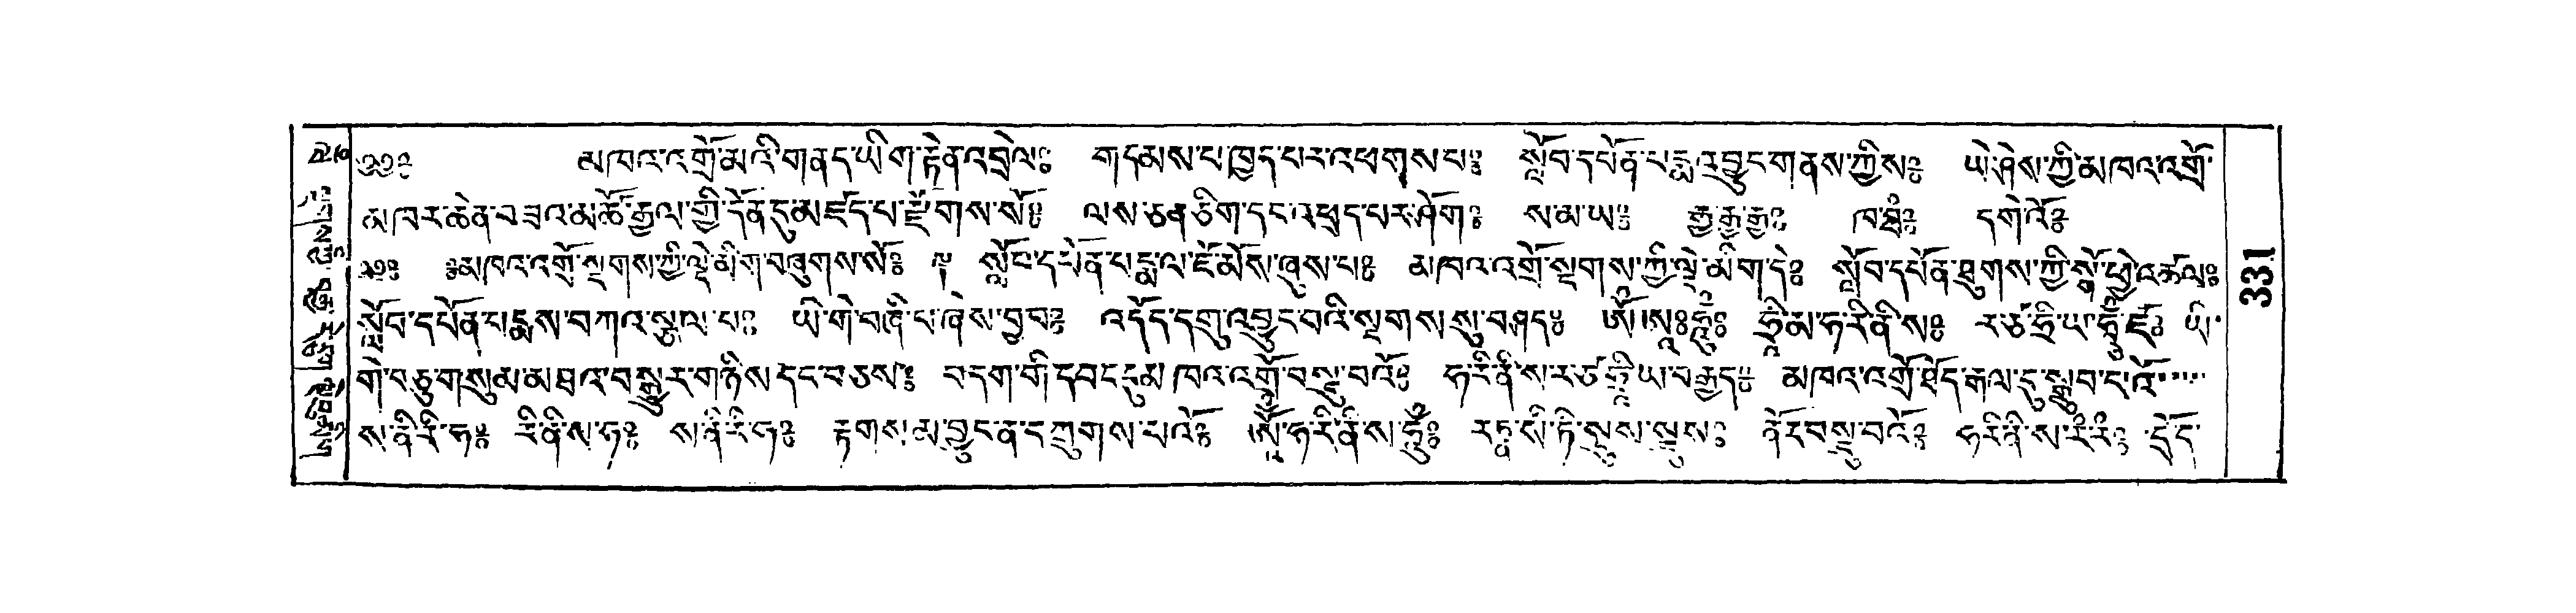 ༄༅༔ མཁའ་འགྲོ་མའི་གནད་ཡིག་རྟེན་འབྲེལ༔ གདམས་པ་ཁྱད་པར་འཕགས་པ༔ སློབ་དཔོན་པདྨ་འབྱུང་གནས་ཀྱིས༔ ཡེ་ཤེས་ཀྱི་མཁའ་འགྲོ་
མཁར་ཆེན་བཟའ་མཚོ་རྒྱལ་གྱི་དོན་དུ་མཛད་པ་རྫོགས་སོ༔ ལས་ཅན་ཅིག་དང་འཕྲད་པར་ཤོག༔ ས་མ་ཡ༔ རྒྱ་རྒྱ་རྒྱ༔ ཁ་ཐཾ༔ དགེའོ༔
༄༅༔ ༔མཁའ་འགྲོ་སྔགས་ཀྱི་ལྡེ་མིག་བཞུགས་སོ༔ ༈ སློབ་དཔོན་པདྨ་ལ་ཇོ་མོས་ཞུས་པ༔ མཁའ་འགྲོ་སྔགས་ཀྱི་ལྡེ་མིག་དེ༔ སློབ་དཔོན་ཐུགས་ཀྱི་སྒོ་ཕྱེ་འཚལ༔
སློབ་དཔོན་པདྨས་བཀའ་སྩལ་པ༔ ཡི་གེ་བཞི་པ་ཞེས་བྱ་བ༔ འདོད་དགུ་འབྱུང་བའི་སྔགས་སུ་བཤད༔ ཨོཾ་ཨཱཿཧཱུྃ༔ ཧྲཱི་མ་ཧ་རི་ནི་ས༔ ར་ཙ་ཧྲི་ཡ་ཧཱུྃ་ཛཿ ཡི་
གེ་བཅུ་གསུམ་མཐའ་བསྒྱུར་གཉིས་དང་བཅས༔ བདག་གི་དབང་དུ་མཁའ་འགྲོ་བསྡུ་བའོ༔ ཧ་རི་ནི་ས་ར་ཙ་ཧྲཱི་ཡ་བརྒྱད༔ མཁའ་འགྲོ་ཐོད་རྒལ་དུ་སྒྲུབ་
ས་ནི་རི་ཧ༔ རི་ནི་ས་ཧ༔ ས་ནི་རི་ཧ༔ རྟགས་མ་བྱུང་ན་དཀྲུགས་པའོ༔ ཨོཾ་ཧ་རི་ནི་ས་ཧཱུྃ༔ སྡུས་སྡུས༔ ནོར་བསྡུ་བའོ༔ ཧ་རི་ནི་ས་